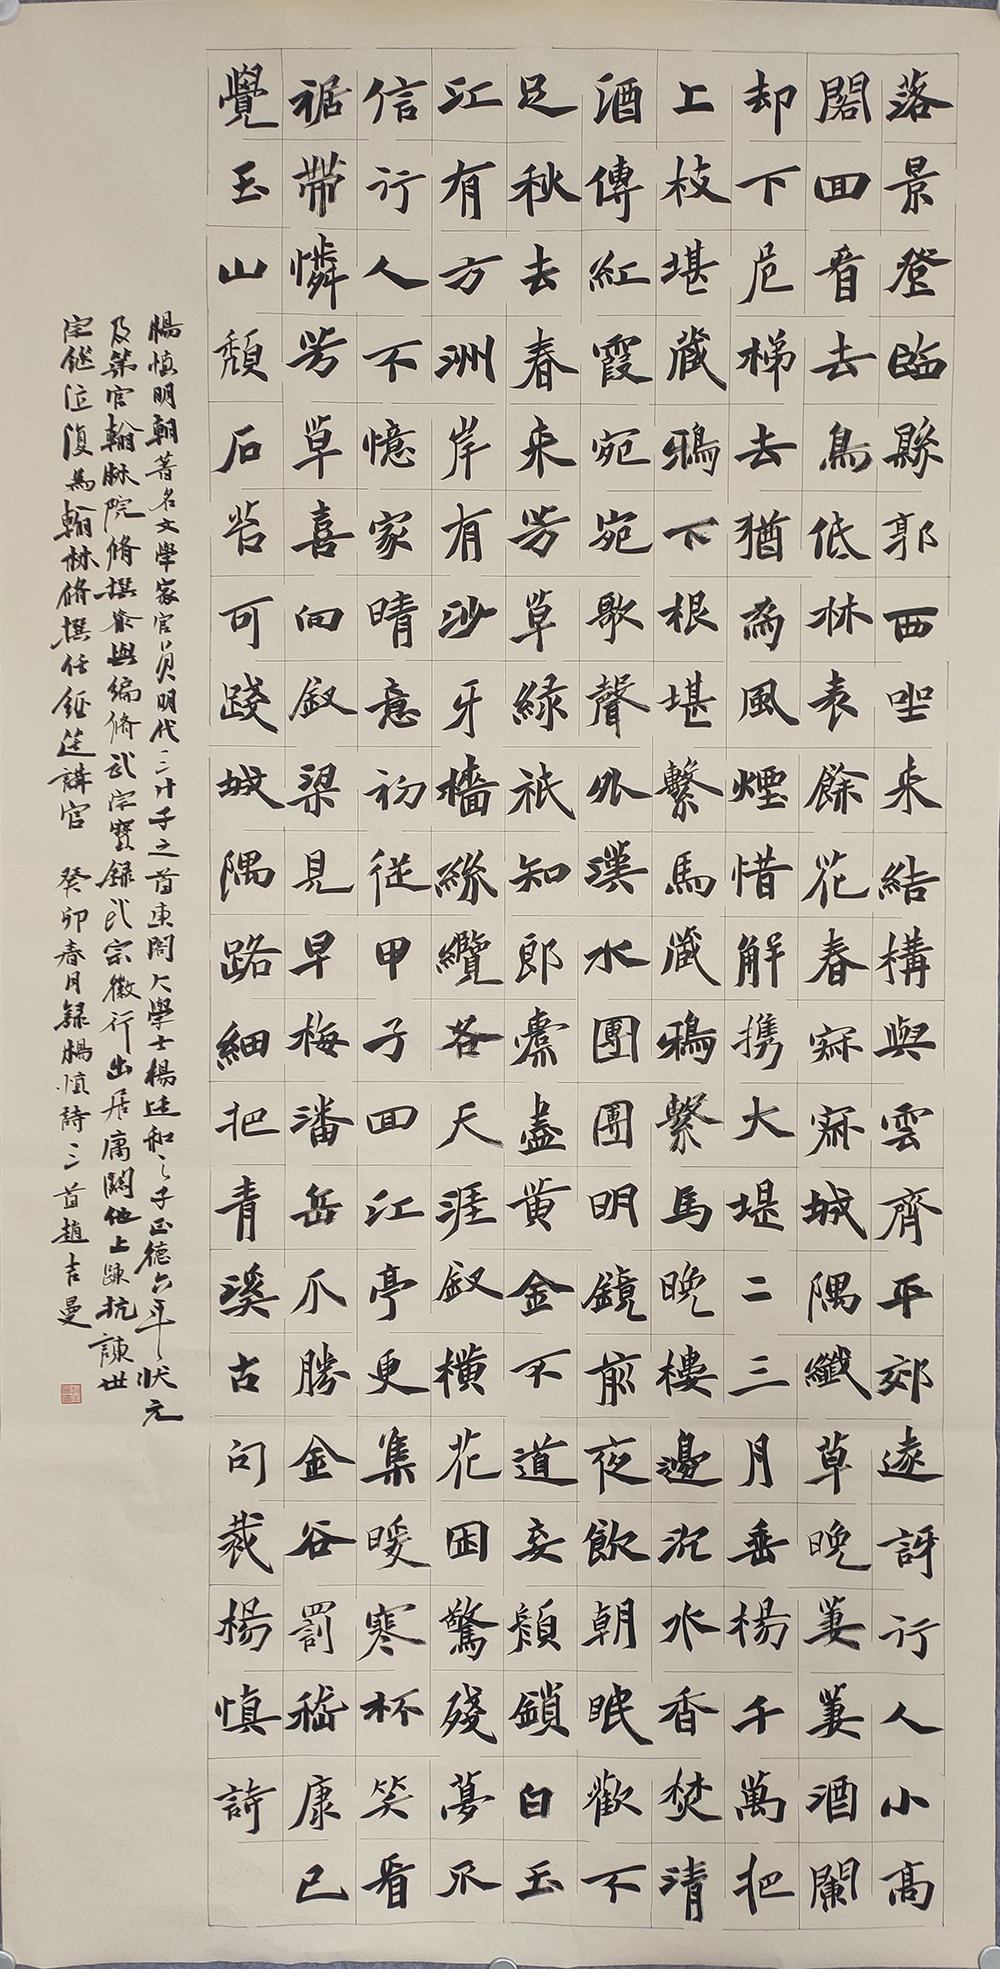 落景登臨縣郭西坐来結構與雲齊平郊遠訝行人小高
閣回看去鳥低林表餘花春寂寂城隅纖草晚萋萋酒闌
却下危梯去猶為風煙惜解携大堤二三月垂楊千萬把
上枝堪藏鴉下根堪繫馬藏鴉繫馬晚樓邊沉水香焚清
酒傳紅霞宛宛歌聲外漢水團團明鏡前夜飲朝眠歡不
足秋去春来芳草緑祇知郎橐盡黄金不道妾顔鎖白玉
江有方洲岸有沙牙檣綵纜各天涯釵横花困驚殘夢不
信行人不憶家晴意初従甲子回江亭更集暖寒杯笑看
裾帶憐芳草喜向釵梁見早梅潘岳不勝金谷罰嵇康已
覺玉山頹石苔可踐城隅路細把青溪古句裁楊慎詩
楊慎明朝著名文學家官員明代三才子之首東閣大學士楊廷和之子正德六年状元
及第官翰林院脩撰参與編脩武宗實録武宗微行出居庸關他上疎抗諫世
宗继位復為翰林脩撰任經筵講官 癸卯春月録楊慎詩三首趙吉曼